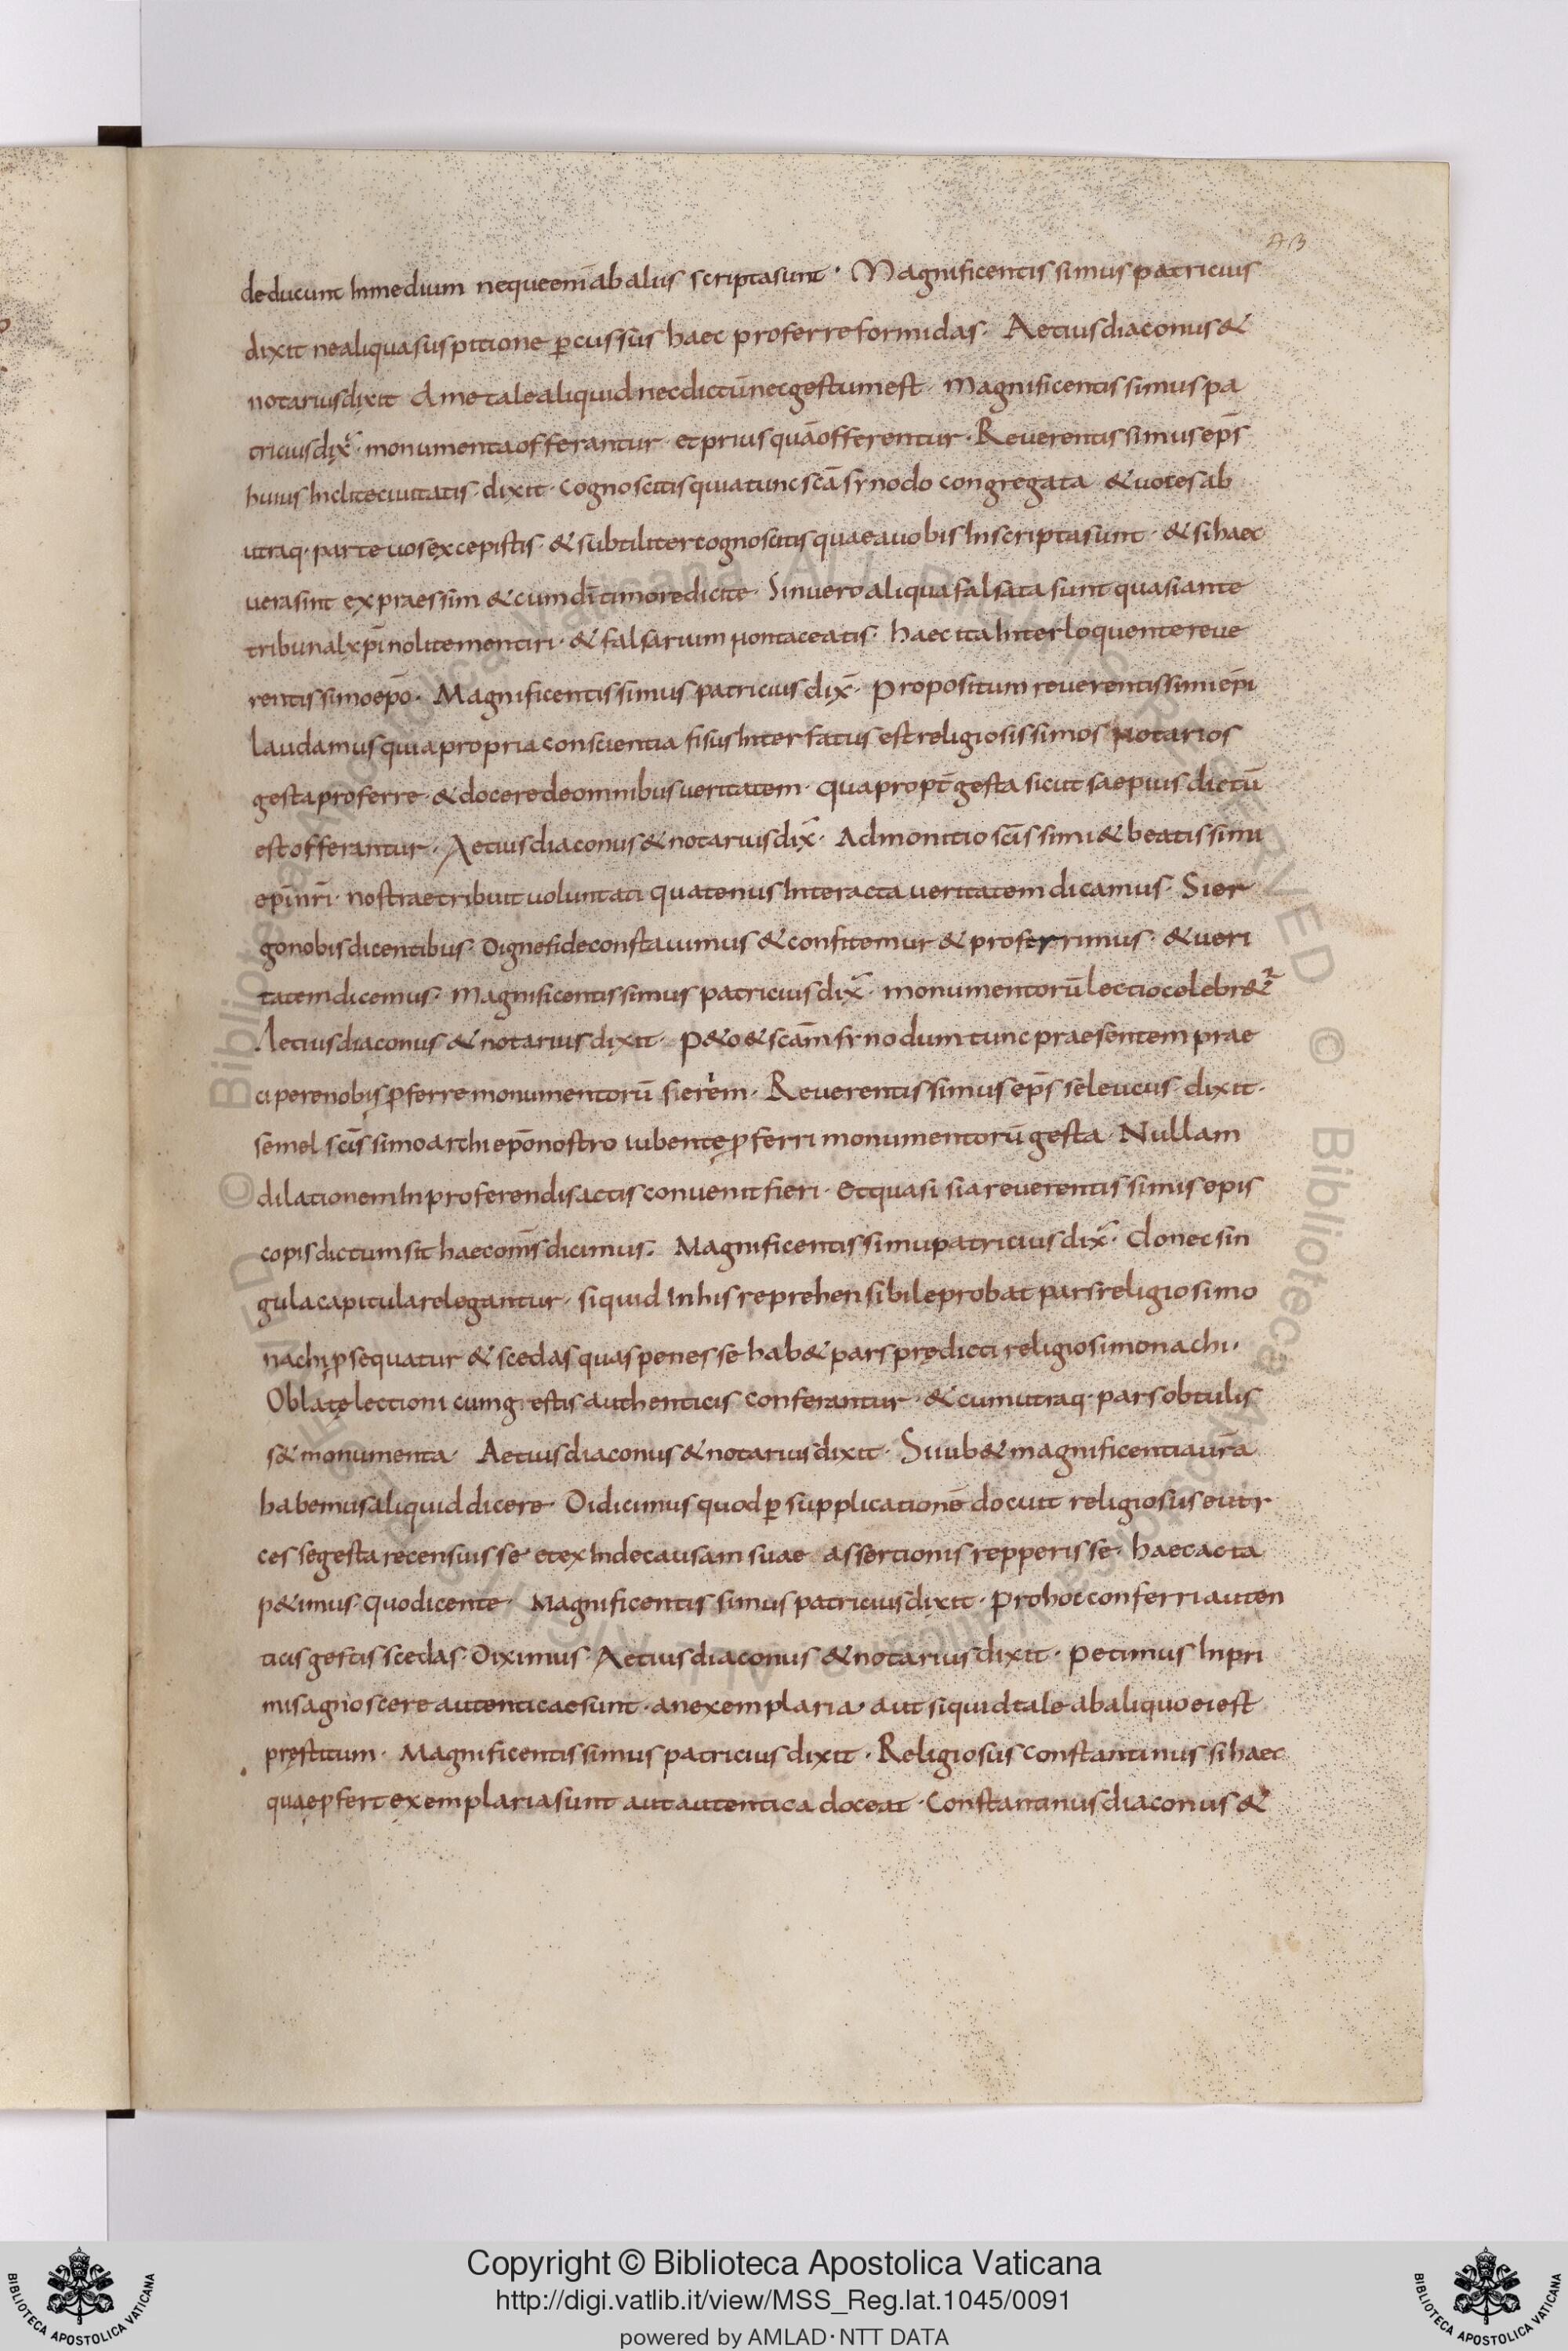 43
deducunt Inmedium nequeeni̅ abaliis scriptasunt · Magnificentissimus patricius
dixit nealiquasuspitione ꝑcussus haec proferreformidas · Aetiusdiaconus &
notariusdixit Ametalealiquid necdictu̅ necgestumest · Magnificentissimus pa
triciusdix̅ · monumentaofferantur · etpriusqua̅offerentur · Reuerentissimus ep̅s
huius Incliteciuitatis · dixit · cognoscitis quiatunc sc̅a synodo congregata & uotesab
utraq· parte uosexcepistis · & subtilitercognoscitis quaeauobis Inscriptasunt · & sihaec
uerasint expraessim & cumdi̅timoredicite · Sinuero aliqua falsata sunt quasiante
tribunalxp̅i nolitementiri · & falsarium nontaceatis · haec ita Interloquentereue
rentissimoep̅o · Magnificentissimus patricius dix̅ · Propositum reuerentissimi ep̅i
laudamus quiapropria conscientia fisus Interfatus est religiosissimos notarios
gestaproferre · & doceredeomnibus ueritatem · quapropt̅ gesta sicut saepius dictu̅
estofferantur · Aetiusdiaconus & notariusdix̅ · Admonitio sc̅issimi & beatissimi
ep̅i nr̅i · nostraetribuit uoluntati quatenus Interacta ueritatem dicamus · Sier
gonobisdicentibus · Dignefideconstauimus & confitemur & proferrimus · & ueri
tatemdicemus · Magnificentissimus patricius dix̅ · monumentoru̅ lectiocelebr&r
Aetiusdiaconus & notarius dixit · P&o & sca̅m synodum tunc praesentem prae
ciperenobis ꝓferre monumentoru̅ sierem · Reuerentissimus ep̅s seleucus dixit ·
semel sc̅issimoarchiep̅o nostro iubente ꝓferri monumentoru̅ gesta · Nullam
dilationem Inproferendis actis conuenit fieri · Etquasi sia reuerentissimis epis
copis dictumsit haecom̅s dicimus · Magnificentissimu patricius dix̅ · donec sin
gula capitularelegantur · siquid Inhis reprehensibile probat pars religiosimo
nachi ꝓsequatur & scedas quas penes se hab& pars prędicti religiosimonachi ·
Oblatę lectioni cumgestis authenticis conferantur · & cumutraq· pars obtulis
s& monumenta · Aetiusdiaconus & notarius dixit · Siiub& magnificentiaur̅a
habemusaliquid dicere · Didicimus quod ꝑ supplicatione̅ docuit religiosus euty
ces segesta recensuisse etex Indecausam suae assertionis repperisse · haecacta
p&imus · quodicente · Magnificentissimus patricius dixit · Prohocconferriauten
ticis gestis scedas · Diximus · Aetiusdiaconus & notarius dixit · Petimus Inpri
mis agnoscere autenticaesunt · anexemplaria · aut siquid tale abaliquo eiest
pręstitum · Magnificentissimus patricius dixit · Religiosus constantinus sihaec
quae ꝓfert exemplariasunt autautentica doceat · Constantinus diaconus &
Copyright © Biblioteca Apostolica Vaticana
http://digi.vatlib.it/view/MSS_Reg.lat.1045/0091
powered by AMLAD·NTT DATA
BIBLIOTECA APOSTOLICA VATICANA
BIBLIOTECA APOSTOLICA VATICANA